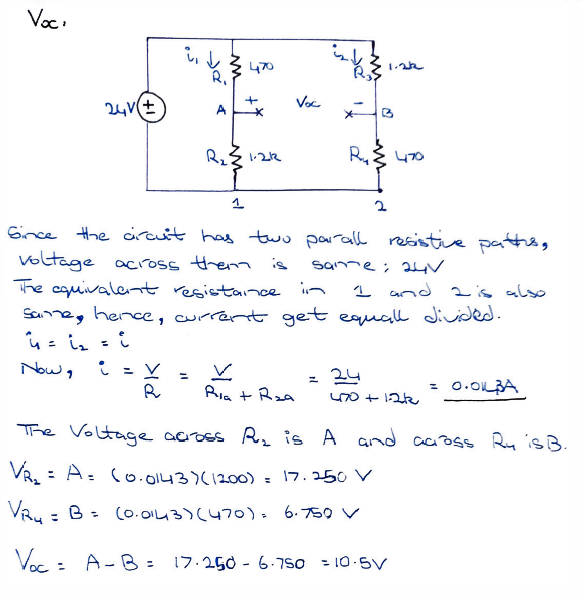 Voc.
i₁ ↓ R₁ 470
i₂ ↓ R₃ 1.2k
24V
A + Voc - B
R₂ 1.2k
R₄ 470
1 2
Since the circuit has two parall resistive paths,
voltage across them is same : 24V
The equivalent resistance in 1 and 2 is also
same, hence, current get equall divided.
i₁ = i₂ = i
Now, i = V/R = V/(R₁ₐ + R₂ₐ) = 24/(470 + 1.2k) = 0.0143A
The Voltage across R₂ is A and across R₄ is B.
V_R₂ = A = (0.0143)(1200) = 17.250 V
V_R₄ = B = (0.0143)(470) = 6.750 V
Voc = A - B = 17.250 - 6.750 = 10.5V